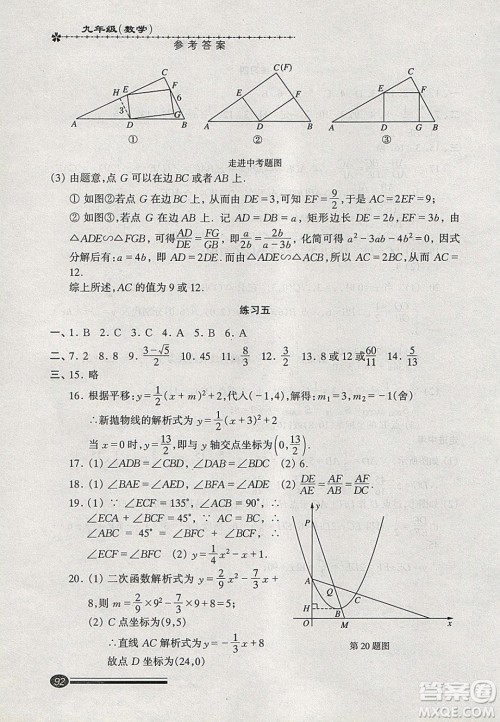 九年级(数学)
参考答案
C(F)
C
C
H E F
E
E F
6
A D G B
A D B
A D G B
① ② ③
走进中考题图
(3) 由题意,点 G 可以在边 BC 或者 AB 上.
① 如图②若点 G 在边 BC 上,从而由 DE=3,可知 EF=9/2,于是 AC=2EF=9;
② 如图③若点 G 在边 AB 上. 设 AD=DB=a,矩形边长 DE=2b,EF=3b,由
△ADE∽△FGB,可得 AD/DE=FG/GB,即 a/2b=2b/(a-3b),化简可得 a²-3ab-4b²=0,因式
分解后有:a=4b,即 AD=2DE. 而由△ADE∽△ACB 得 AC=2BC,从而 AC=
12.
综上所述,AC 的值为 9 或 12.
练习五
一、1. B 2. C 3. C 4. B 5. B 6. A
二、7. 2 8. 8 9. (3-√5)/2 10. 45 11. 2/3 12. 3/4 13. 8 或 12 或 60/11 14. 5/13
三、15. 略
16. 根据平移:y=1/2(x+m)²+2,代入(1,4),解得:m=1(舍)
∴新抛物线的解析式为 y=1/2(x-3)²+2
当 x=0 时,y=13/2,即与 y 轴交点坐标为(0,13/2)
17. (1) ∠ADB=∠ACD (2) 6.
18. (1) ∠AED=∠ABC,∠BFA=∠DFE (2) DE/AE=AF/AB=AF/DC
19. (1) ∵ ∠ECF=135°,∠ECA=90°,∴
∠ECA+∠BCF=45°,∵ ∠ECA+
∠CEA=∠CAB=45° ∴ ∠BCF=
∠CEA (2) y=1/4x²-x+1.
20. (1) 二次函数解析式为 y=2/9x²-7/3x
+8,则 m=2/9×9²-7/3×9+8=5
(2) C 点坐标为(9,5)
∴直线 AC 解析式为 y=-1/3x+8
故点 D 坐标为(24,0)
y
P
A
Q C
H B
O M x
第 20 题图
92
答案圈
MXQE.COM